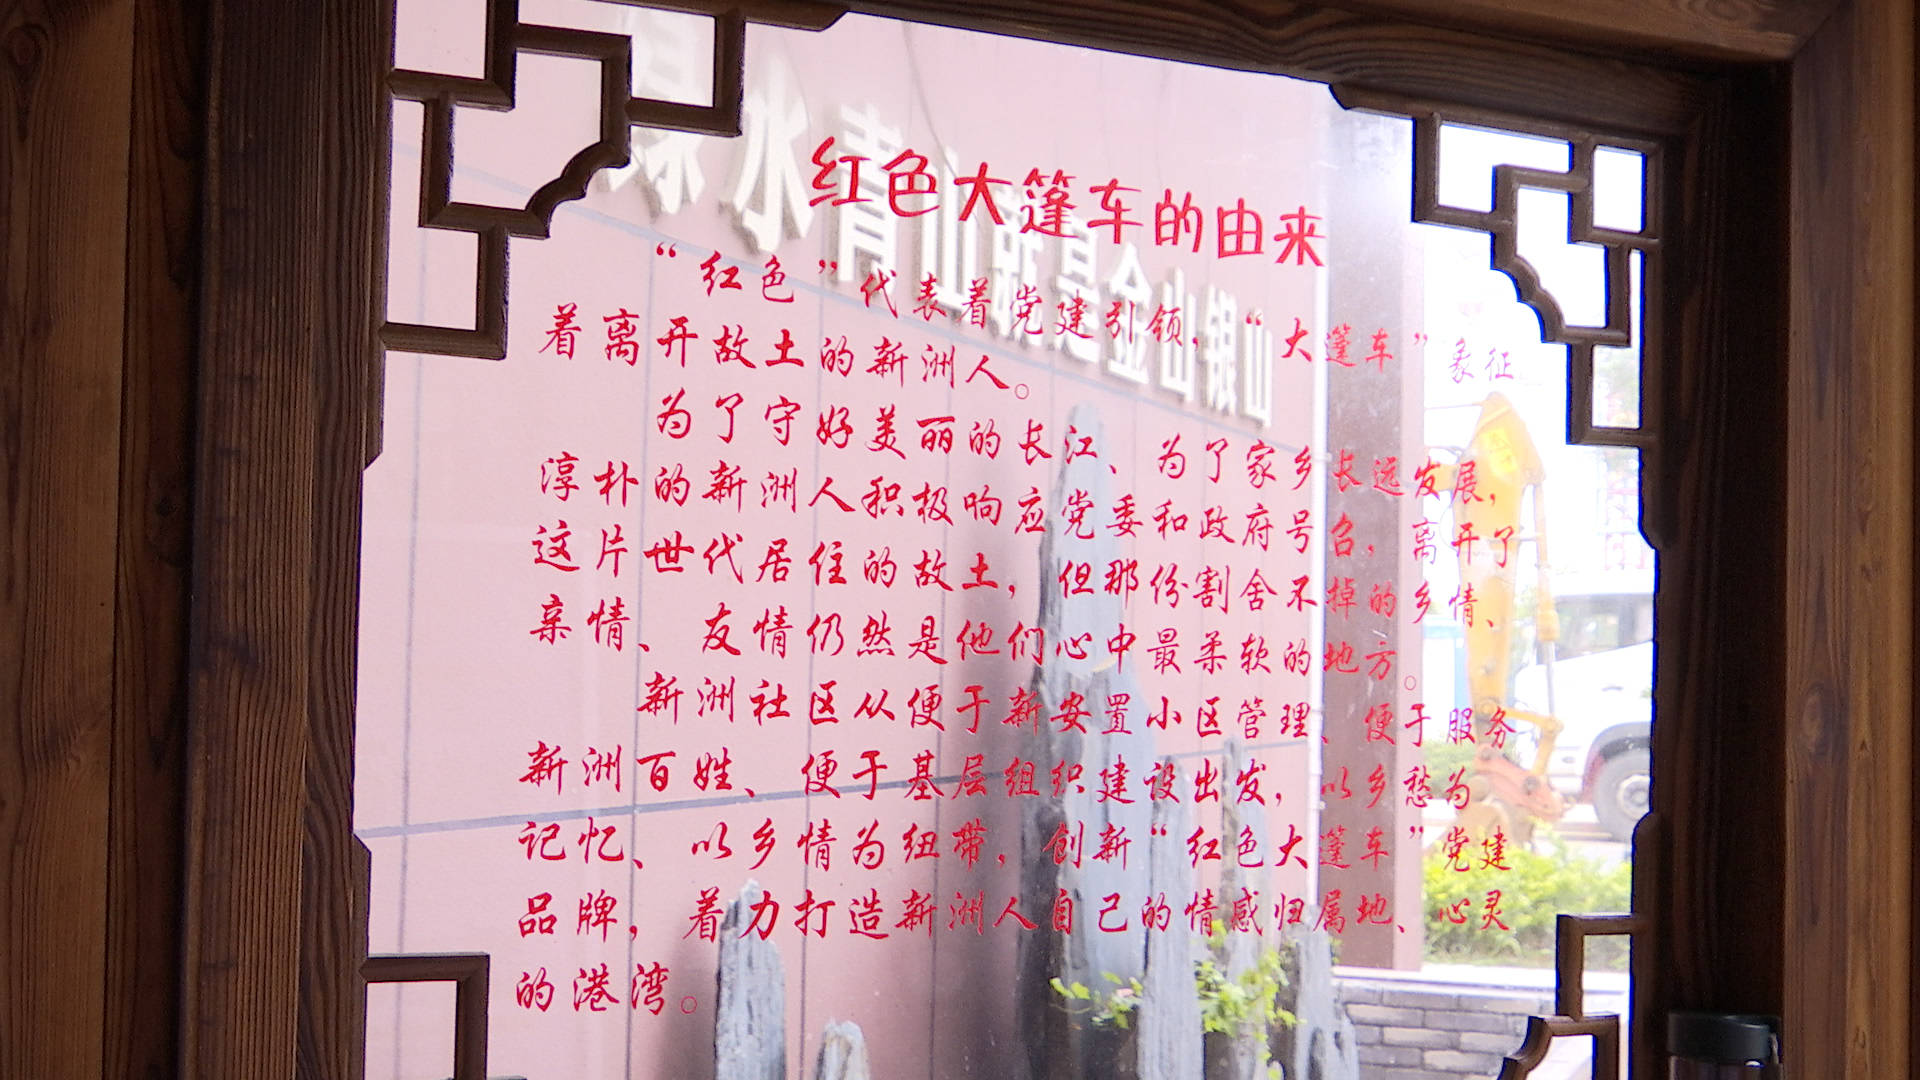 绿水青山就是金山银山
红色大篷车的由来
“红色”代表着党建引领，“大篷车”象征
着离开故土的新洲人。
为了守好美丽的长江、为了家乡长远发展，
淳朴的新洲人积极响应党委和政府号召，离开了
这片世代居住的故土，但那份割舍不掉的乡情、
亲情、友情仍然是他们心中最柔软的地方。
新洲社区从便于新安置小区管理、便于服务
新洲百姓、便于基层组织建设出发，以乡愁为
记忆、以乡情为纽带，创新“红色大篷车”党建
品牌，着力打造新洲人自己的情感归属地、心灵
的港湾。